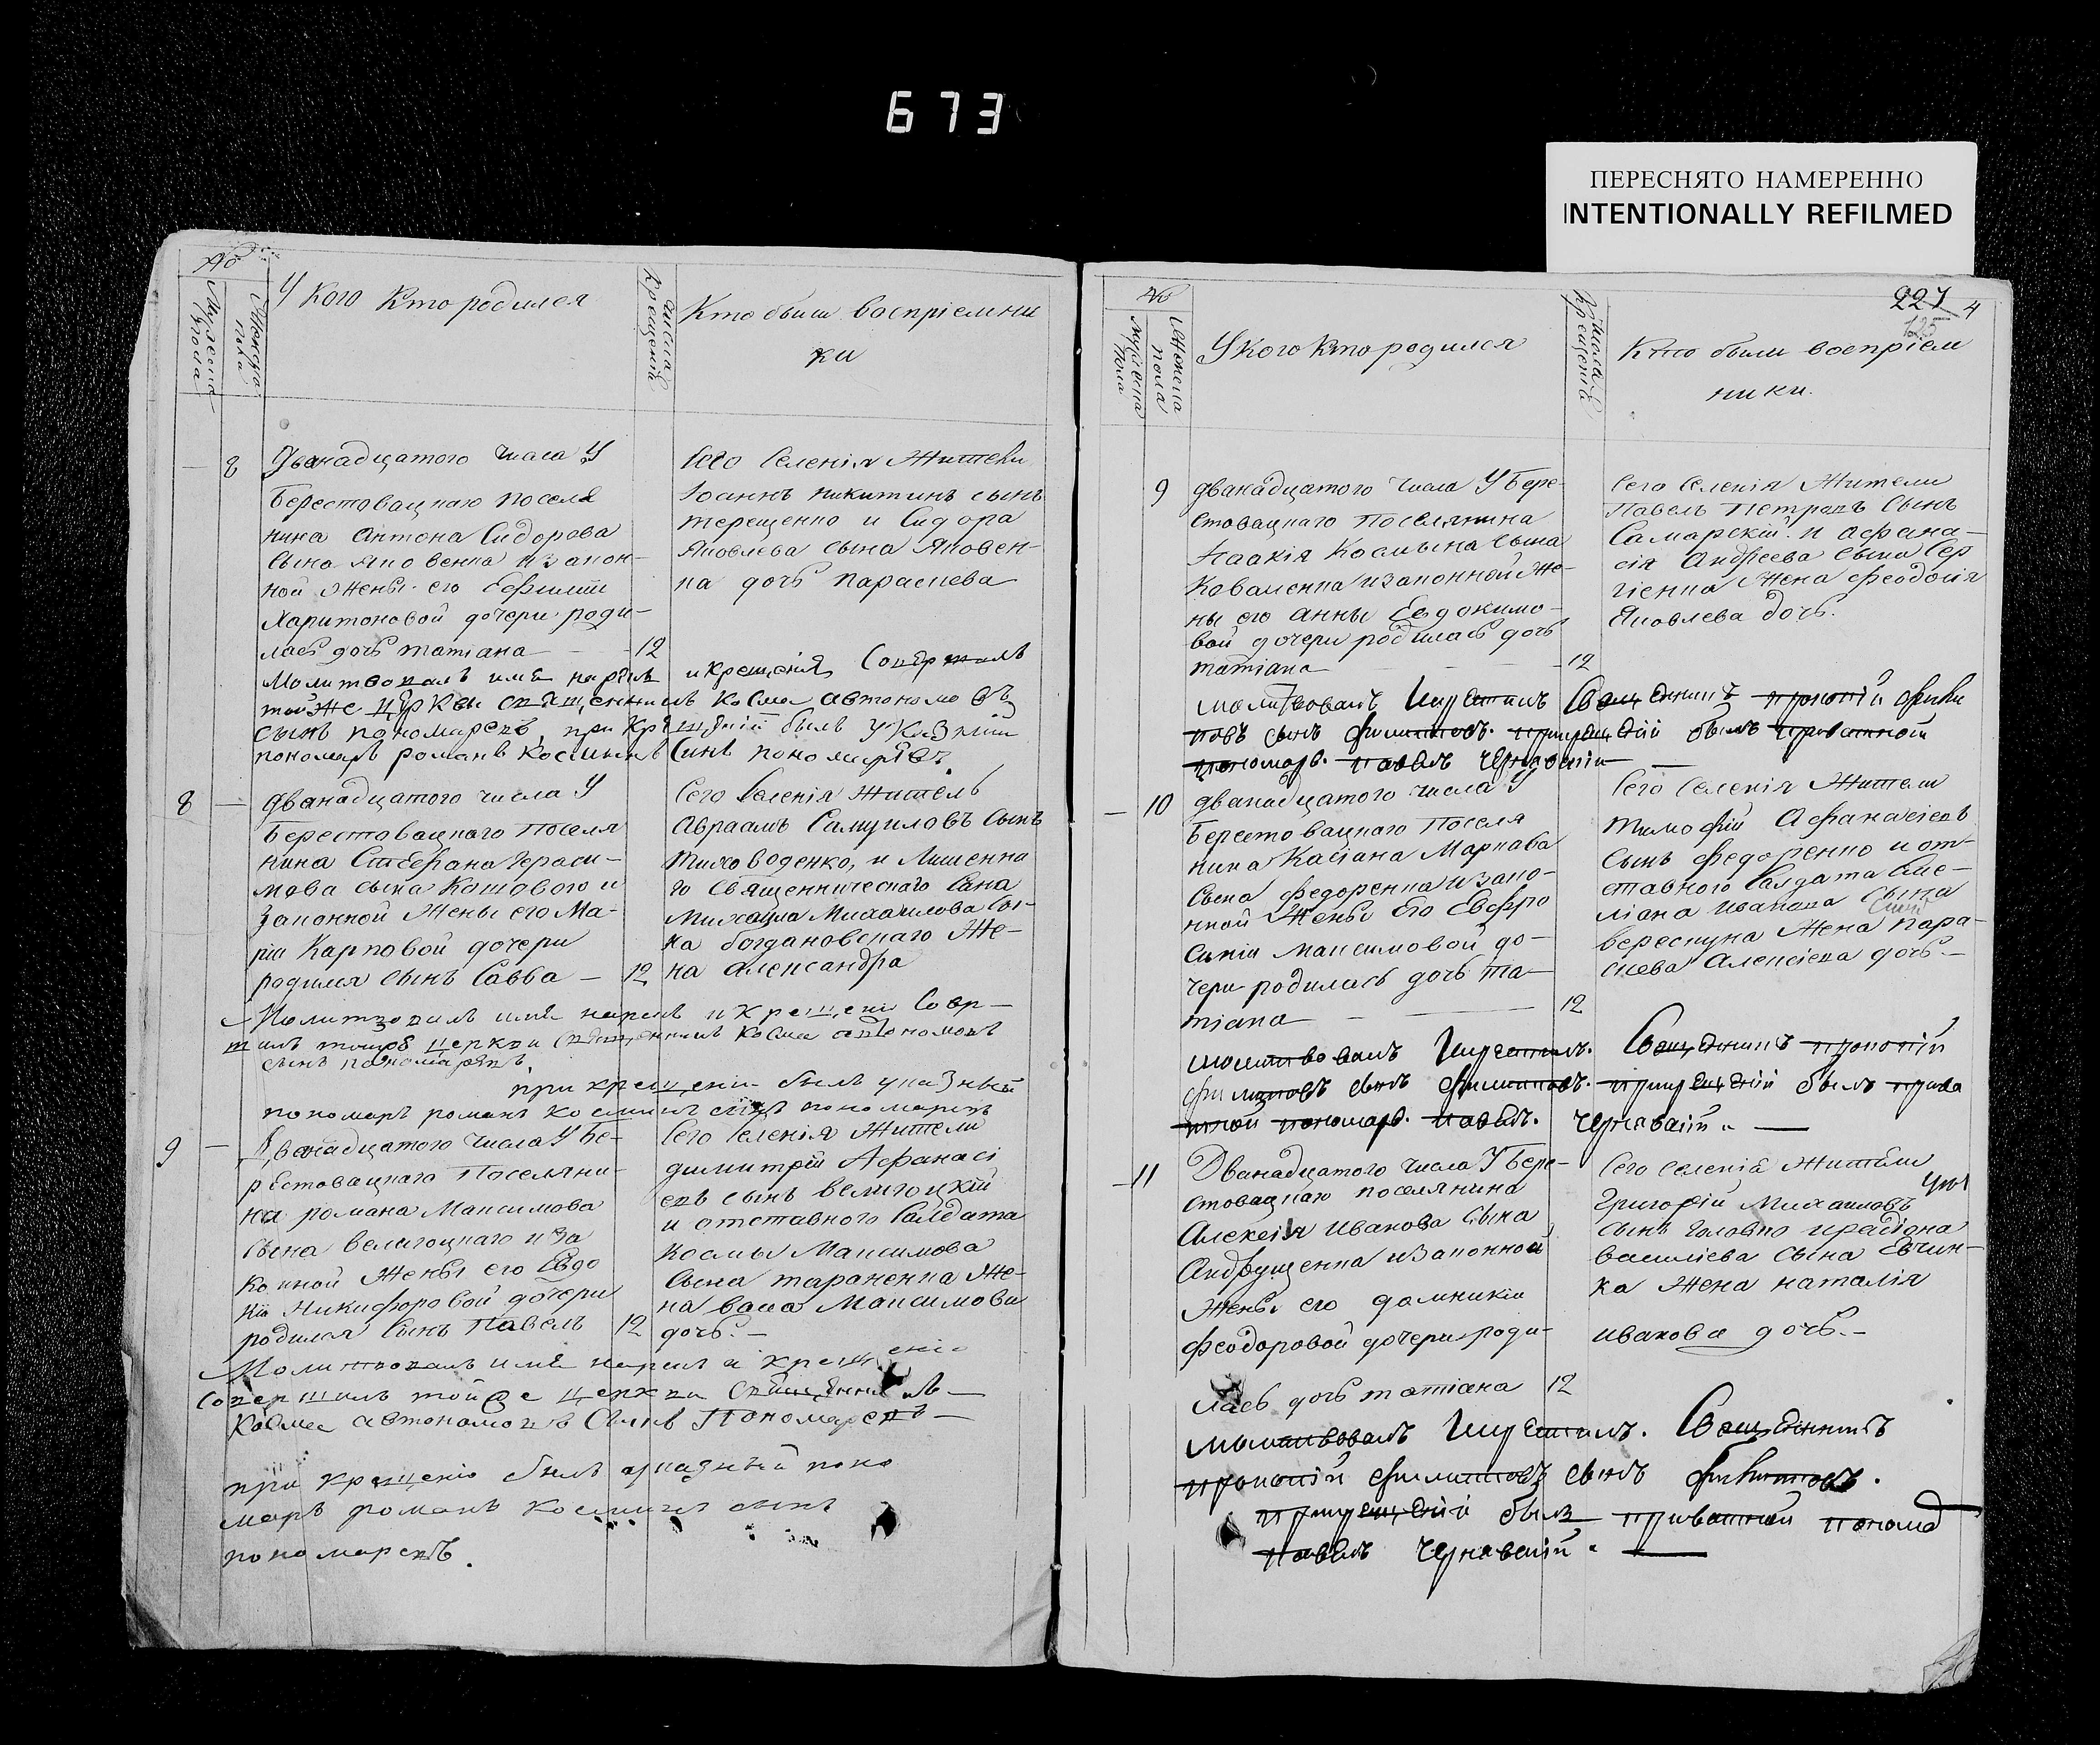 673
ПЕРЕСНЯТО НАМЕРЕННО
INTENTIONALLY REFILMED
№
Мужеска пола
Женска пола
У кого кто родился
числа крещений
Кто были воспріемни
ки
8
Двенадцатого числа У
Берестовацкаго поселя
нина Антона Сидорова
сына Яковенка и закон-
ной жены его Ефиміи
Харитоновой дочери роди-
лась дочь татіана 12
Сего Селенія Жители
Іоаннъ никитинъ сынъ
терещенко и Сидора
Яковлева сына Яковен-
ка дочь параскева
Молитвовалъ имя нарекъ и крещенія Совершилъ
тойже церкви священникъ косма автономовъ
сынъ пономаревъ, при крещеніи былъ указний
пономарь романъ косминъ Синъ пономарівъ.
8
двенадцатого числа У
Берестовацкаго Поселя
нина Стефана Гераси-
мова сына Кошового и
законной жены его Ма-
ріи Карповой дочери
родился сынъ Савва — 12
Сего Селенія житель
Авраамъ Самуиловъ Сынъ
тиховоденко, и Лишенна
го Священническаго Сана
Михаила Михаилова Сы-
на богдановскаго Же-
на александра
Молитвовалъ имя нарекъ и крещені Совер-
шилъ тоиже церкви священникъ косма автономовъ
сынъ пономаревъ.
при крещеніи былъ указный
пономарь романъ косминъ синъ пономаревъ
9
Двенадцатого числа У Бе-
рестовацкаго Поселяни-
на романа Максимова
сына велигоцкаго и за
конной Жены его Евдо
кіи Никифоровой дочери
родился Сынъ Павелъ 12
Сего Селенія Жители
димитрій Афанасі
евъ сынъ велигоцкій
и отставного Салдата
Космы Максимова
сына тараненка Же-
на васса Максимова
дочь. —
Молитвовалъ имя нарекъ и крещеніе
Совершилъ тойже церкви Священникъ —
Косма автономовъ Сынъ Пономаревъ —
при крещеніи былъ указный поно
марь романъ косминъ сынъ
пономаревъ.
227 4
125
№
Мужеска пола
Женска пола
У кого кто родился
числа крещеній
Кто были воспріем
ники.
9
двенадцатого числа У Бере-
стовацкаго Поселянина
Ісаакія Космина сына
Коваленка и законной же-
ны его анны Евдокимо-
вой дочери родилась дочь
татіана — 12
Сего Селенія Жители
Павелъ Петровъ Сынъ
Самарскій. и афана-
сія Андреева сына Сер
гіенка Жена феодосія
Яковлева дочь.
молитвовалъ Икрестилъ Священникъ прокопій фили
повъ сынъ филиповъ. прикрещеній былъ приватной
пономарь. павелъ чернявскій —
10
двенадцатого числа У
Берестовацкаго Поселя
нина Касіана Маркова
сына федоренка и зако-
нной Жены Его Евфро
сыніи Максимовой до-
чери родилась дочь та-
тіана — 12
Сего Селенія Жители
тимофій Афанасіевъ
Сынъ федоренко и от-
ставного Салдата Еме-
ліана иванова сына
верескуна Жена пара-
скева Алексіева дочь. —
молитвовалъ Икрестилъ. Священникъ прокопій
филиповъ сынъ филиповъ. прикрещеній былъ прива
тной пономарь. павелъ. чернявскій. —
11
Двенадцатого числа У Бере-
стовацкаго поселянина
Алексія Иванова сына
Андрущенка и законной
жены его домникіи
Феодоровой дочери роди-
лась дочь татіана 12
Сего селенія Жители
Григорій Михаиловъ
сынъ головко и радіона
василіева сына Евчин-
ка Жена наталія
иванова дочь. —
молитвовалъ Икрестилъ. Священникъ
прокопій филиповъ сынъ филиповъ.
прикрещеній былъ приватной пономар
павелъ чернявскій. —